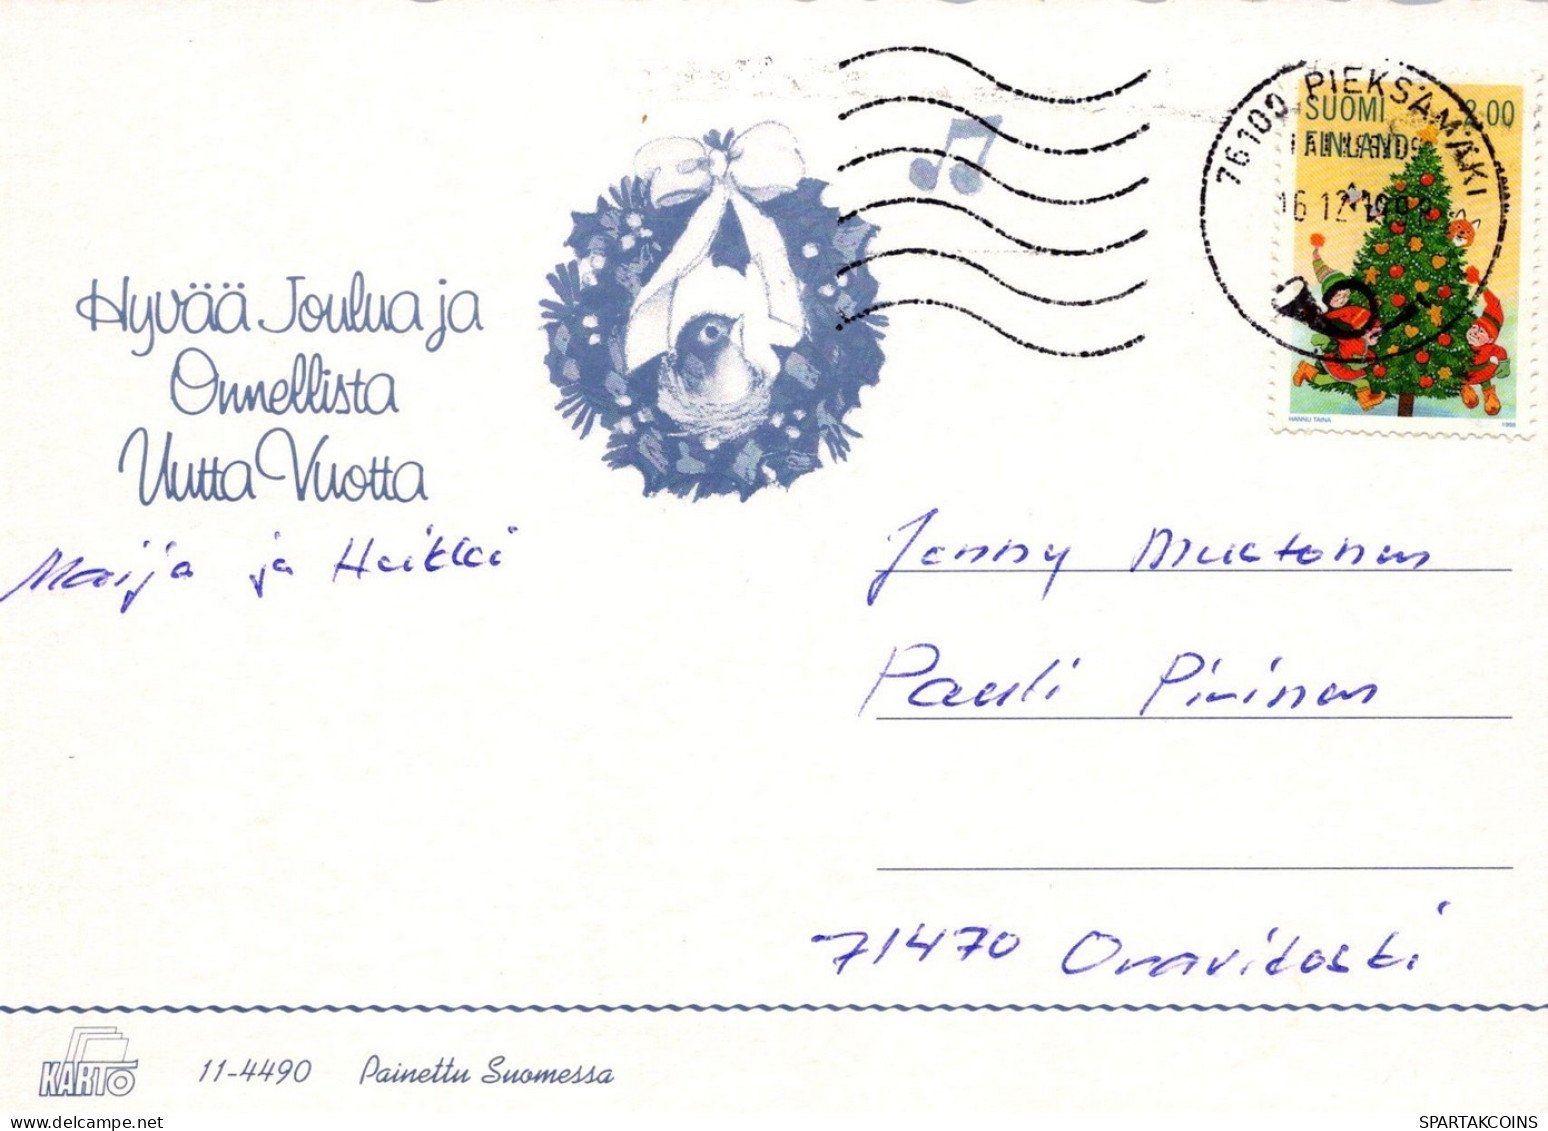 76100 PIEKSÄMÄKI
SUOMI 2.00
FINLAND
16.12.1998
HANNU TAINA 1998
Hyvää Joulua ja
Onnellista
Uutta Vuotta
Maija ja Heikki
Jenny
Pauli Piirinen
71470 Oravikoski
KARTO 11-4490 Painettu Suomessa
SPARTAKCOINS